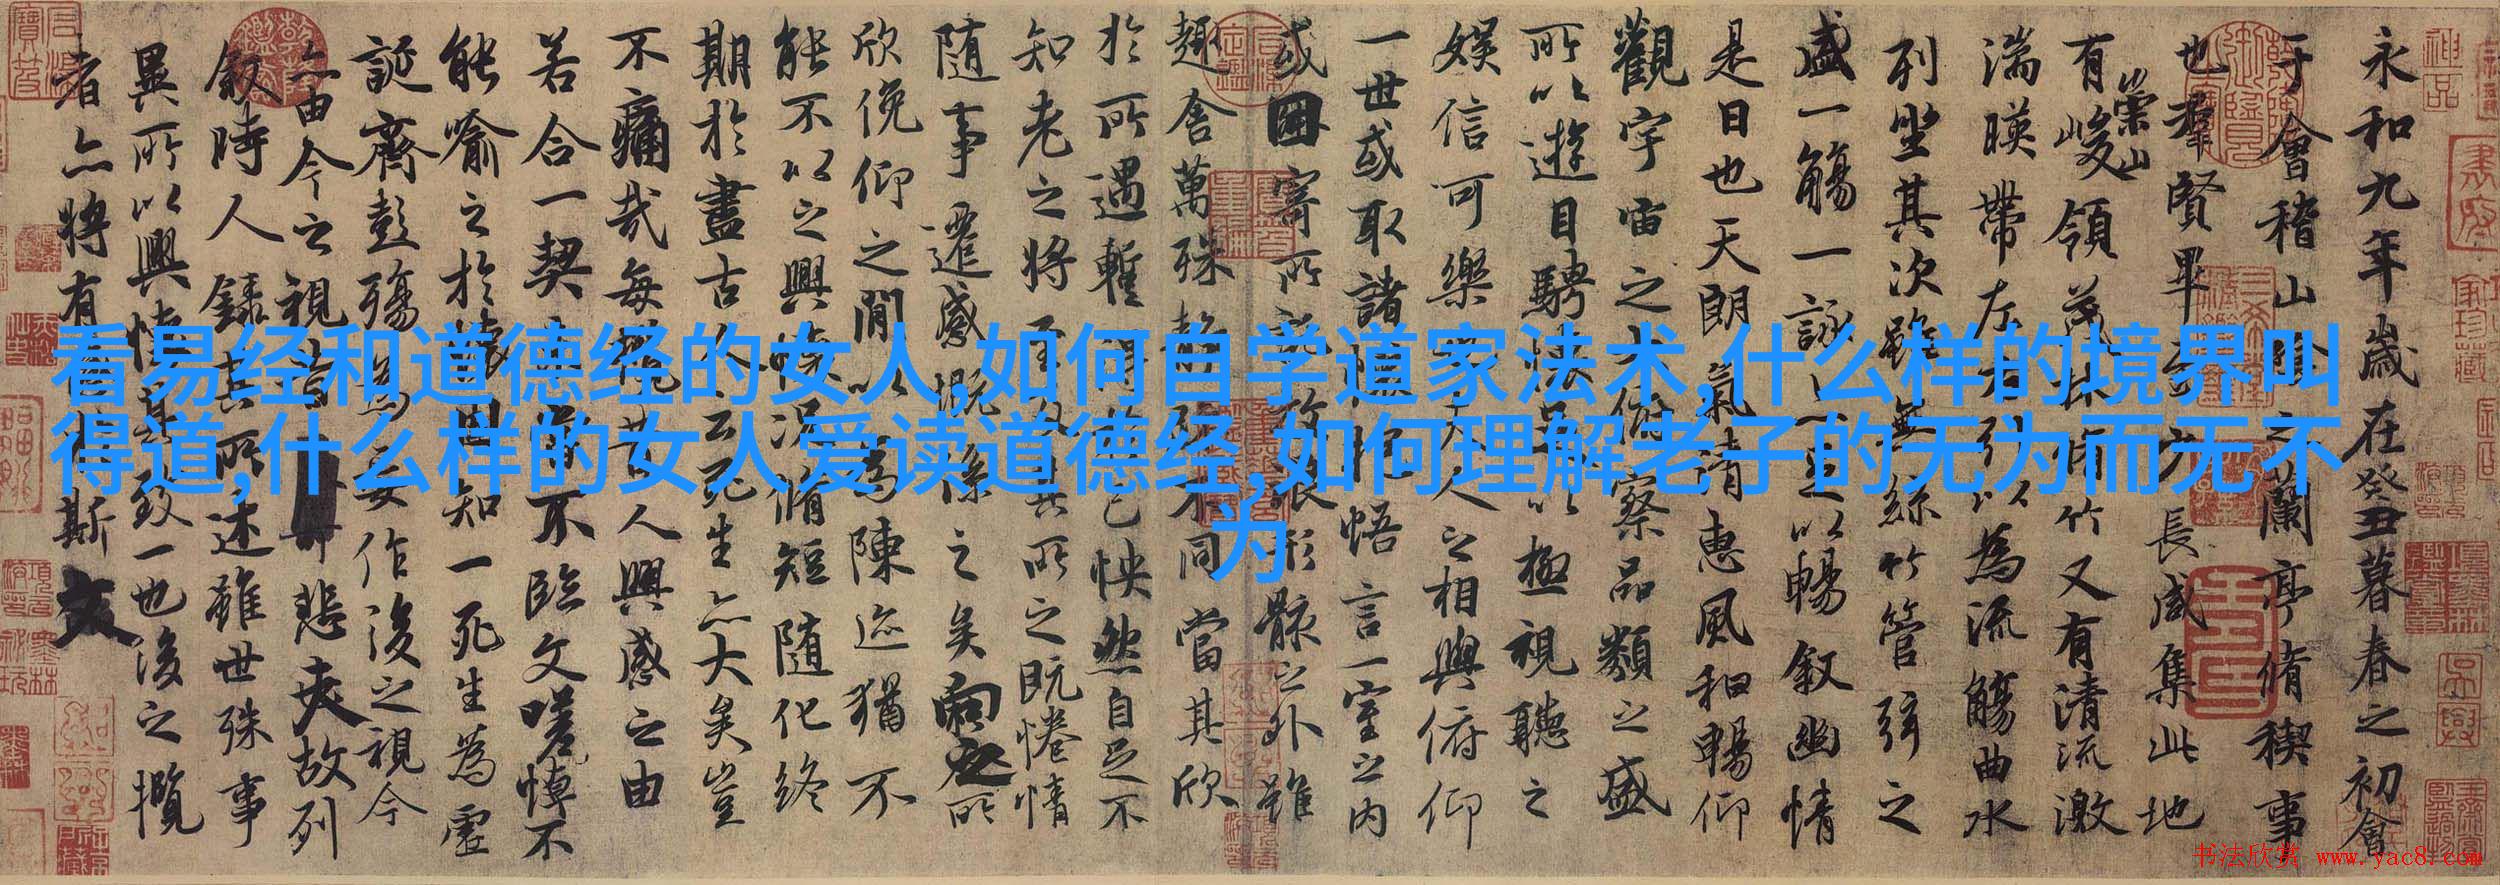 看易经和道德经的女人,如何自学道家法术,什么样的境界叫
得道,什么样的女人爱读道德经,如何理解老子的无为而无不
为
永和九年歲在癸丑暮春之初會
于會稽山陰之蘭亭脩稧事
也群賢畢至少長咸集此地
有崇山峻領茂林脩竹又有清流激
湍暎帶左右引以為流觴曲水
列坐其次雖無絲竹管弦之
盛一觴一詠亦足以暢叙幽情
是日也天朗氣清惠風和暢仰
觀宇宙之大俯察品類之盛
所以遊目騁懷足以極視聽之
娛信可樂也夫人之相與俯仰
一世或取諸懷抱悟言一室之內
或因寄所託放浪形骸之外雖
趣舍萬殊靜躁不同當其欣
於所遇蹔得於己怏然自足不
知老之將至及其所之既惓情
隨事遷感慨係之矣向之所
欣俛仰之閒以為陳迹猶不
能不以之興懷況脩短隨化終
期於盡古人云死生亦大矣豈
不痛哉每攬昔人興感之由
若合一契未嘗不臨文嗟悼不
能喻之於懷固知一死生為虛
誕齊彭殤為妄作後之視今
亦由今之視昔悲夫故列
敘時人錄其所述雖世殊事
異所以興懷其致一也後之攬
者亦將有感於斯文
书法欣赏 www.yac8.com